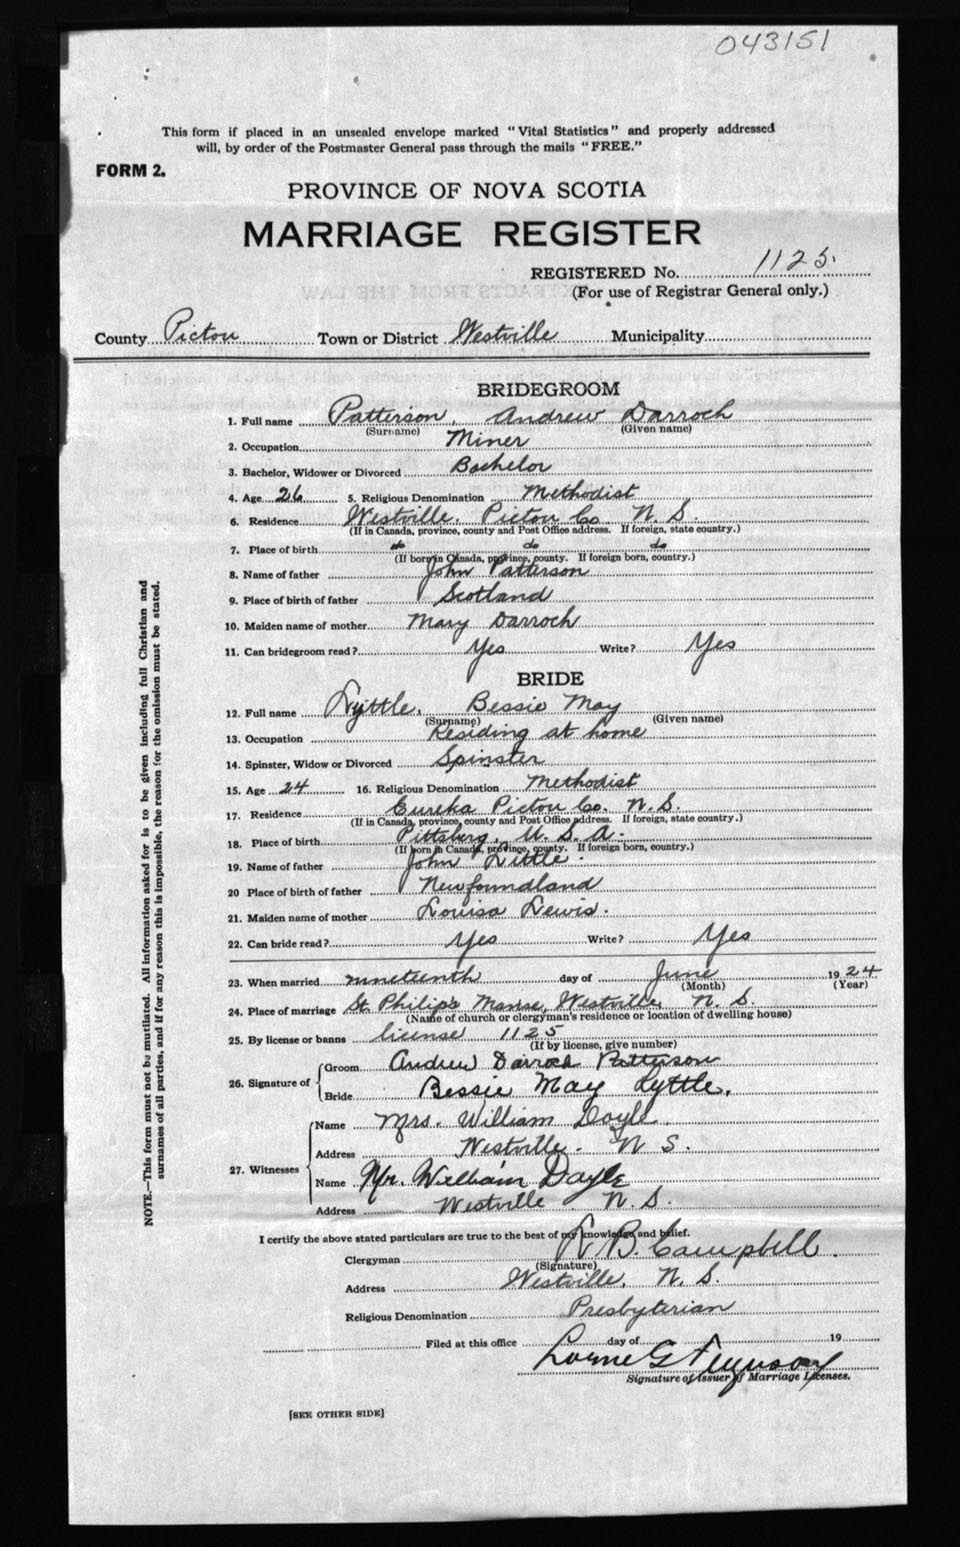 043151
This form if placed in an unsealed envelope marked "Vital Statistics" and properly addressed
will, by order of the Postmaster General pass through the mails "FREE."
FORM 2.
PROVINCE OF NOVA SCOTIA
MARRIAGE REGISTER
REGISTERED No. 1125.
(For use of Registrar General only.)
County Pictou Town or District Westville Municipality
BRIDEGROOM
1. Full name Patterson, Andrew Darroch
(Surname) (Given name)
2. Occupation Miner
3. Bachelor, Widower or Divorced Bachelor
4. Age 26 5. Religious Denomination Methodist
6. Residence Westville, Pictou Co. N.S.
(If in Canada, province, county and Post Office address. If foreign, state country.)
7. Place of birth do do do
(If born in Canada, province, county. If foreign born, country.)
8. Name of father John Patterson
9. Place of birth of father Scotland
10. Maiden name of mother Mary Darroch
11. Can bridegroom read? Yes Write? Yes
BRIDE
12. Full name Lyttle, Bessie May
(Surname) (Given name)
13. Occupation Residing at home
14. Spinster, Widow or Divorced Spinster
15. Age 24 16. Religious Denomination Methodist
17. Residence Eureka Pictou Co. N.S.
(If in Canada, province, county and Post Office address. If foreign, state country.)
18. Place of birth Pittsberg, U.S.A.
(If born in Canada, province, county. If foreign born, country.)
19. Name of father John Little.
20 Place of birth of father Newfoundland
21. Maiden name of mother Louisa Lewis.
22. Can bride read? Yes Write? Yes
23. When married nineteenth day of June 1924
(Month) (Year)
24. Place of marriage St. Philip's Manse, Westville, N.S.
(Name of church or clergyman's residence or location of dwelling house)
25. By license or banns license 1125
(If by license, give number)
26. Signature of Groom Andrew Darroch Patterson
Bride Bessie May Lyttle.
27. Witnesses Name Mrs. William Doyle
Address Westville. N S.
Name Mr. William Doyle
Address Westville N.S.
I certify the above stated particulars are true to the best of my knowledge and belief.
Clergyman B. Campbell.
(Signature)
Address Westville, N.S.
Religious Denomination Presbyterian
Filed at this office day of 19
Lorne G Ferguson
Signature of Issuer of Marriage Licenses.
[SEE OTHER SIDE]
NOTE.—This form must not be mutilated. All information asked for is to be given including full Christian and
surnames of all parties, and if for any reason this is impossible, the reason for the omission must be stated.